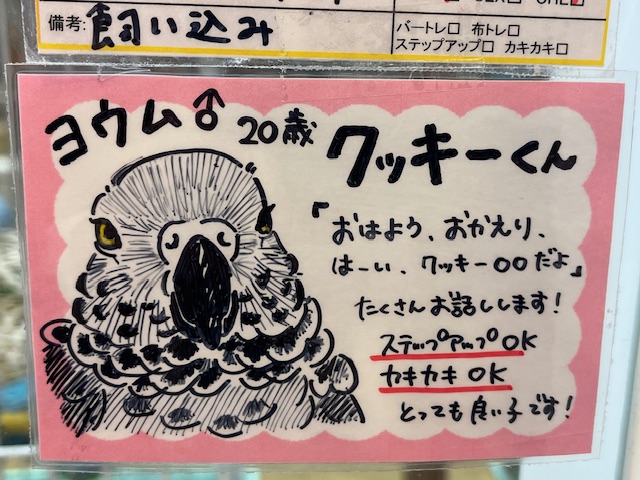 備考: 飼い込み
バートレ□ 布トレ□
ステップアップ□ カキカキ□
ヨウム♂ 20歳 クッキーくん
「おはよう、おかえり、
はーい、クッキー〇〇だよ」
たくさんお話しします!
ステップアップOK
カキカキOK
とっても良い子です!